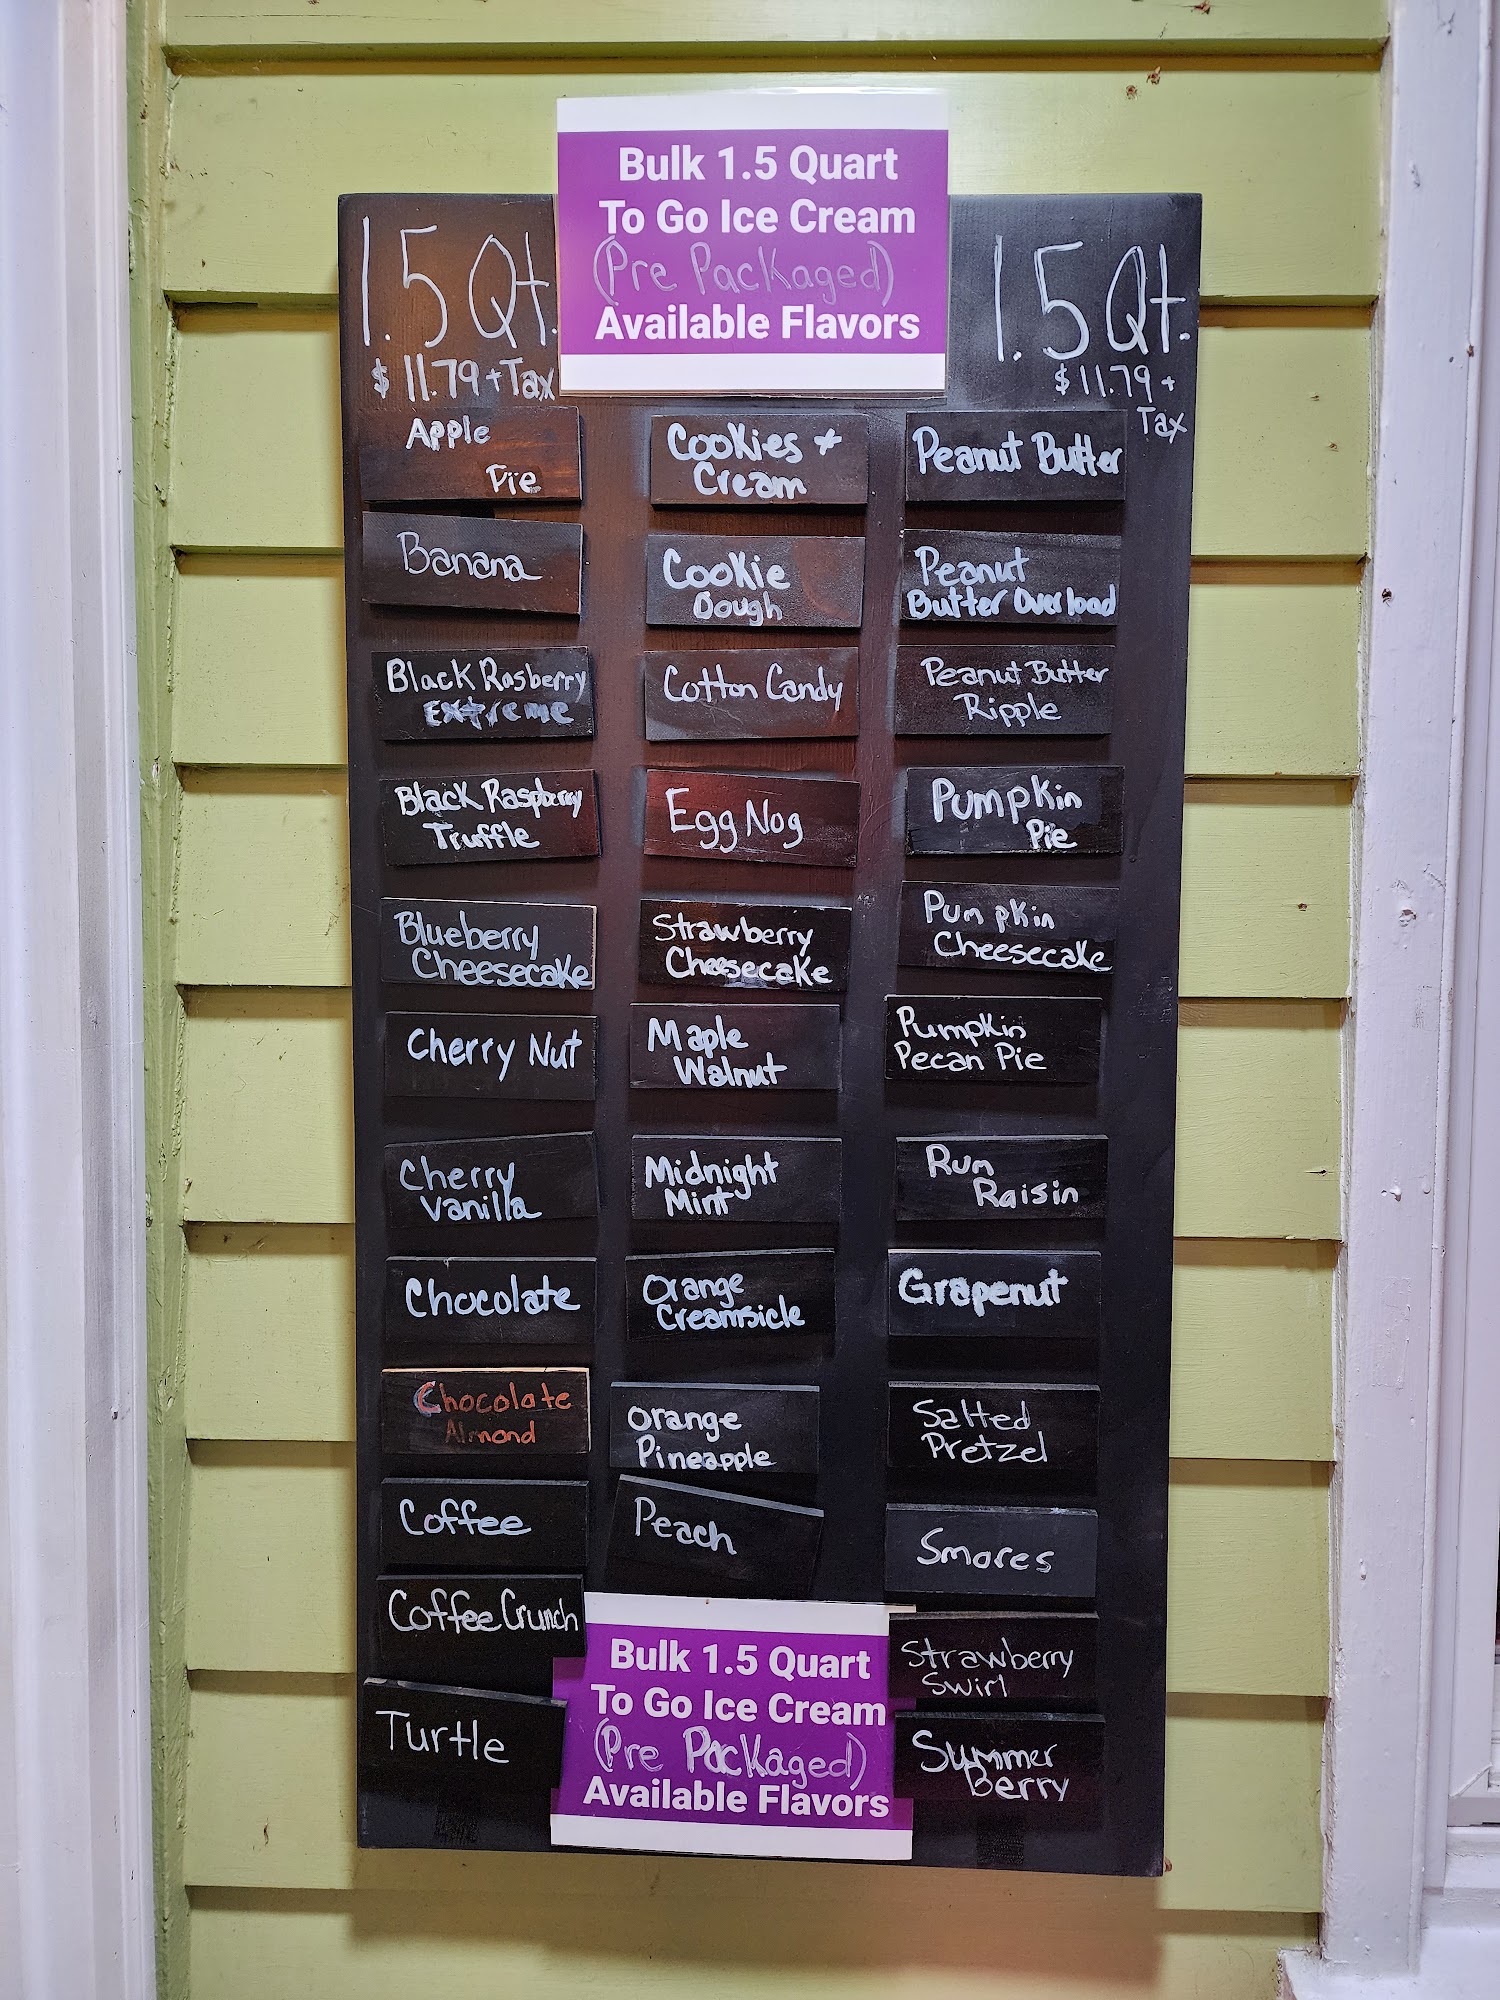 Bulk 1.5 Quart
To Go Ice Cream
(Pre Packaged)
Available Flavors
1.5 Qt.
$11.79 + Tax
1.5 Qt.
$11.79 +
Tax
Apple
Pie
Banana
Black Rasberry
Extreme
Black Raspberry
Truffle
Blueberry
Cheesecake
Cherry Nut
Cherry
Vanilla
Chocolate
Chocolate
Almond
Coffee
Coffee Crunch
Turtle
Cookies +
Cream
Cookie
Dough
Cotton Candy
Egg Nog
Strawberry
Cheesecake
Maple
Walnut
Midnight
Mint
Orange
Creamsicle
Orange
Pineapple
Peach
Peanut Butter
Peanut
Butter Overload
Peanut Butter
Ripple
Pumpkin
Pie
Pumpkin
Cheesecake
Pumpkin
Pecan Pie
Rum
Raisin
Grapenut
Salted
Pretzel
Smores
Strawberry
Swirl
Summer
berry
Bulk 1.5 Quart
To Go Ice Cream
(Pre Packaged)
Available Flavors